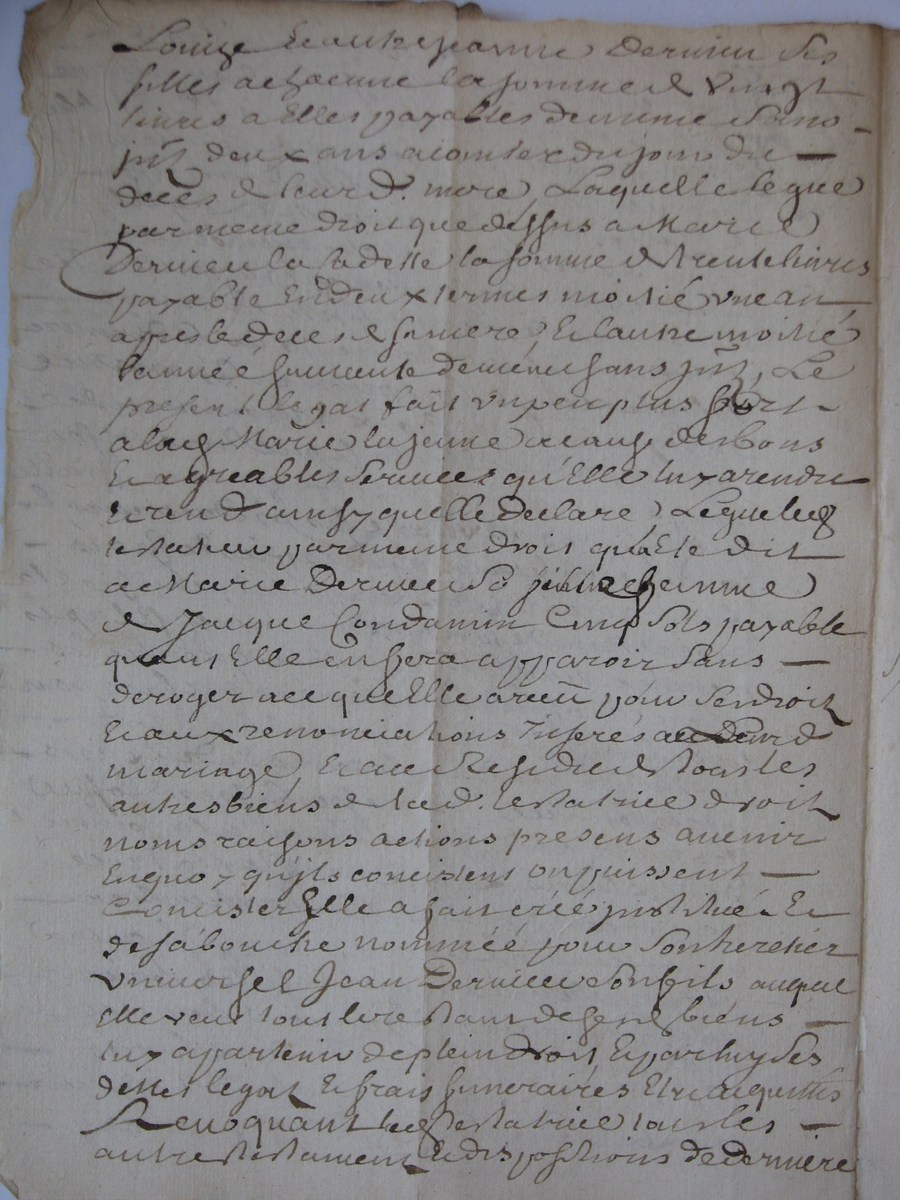 Louize et autre jeanne Dervieu ses
filles a chacune la somme de vingt
livres a Elles payables de mime sans
jnt deux ans a conter du jour du
deces de leur d. mere, Laquelle legue
par meme droit que dessus a Marie
Dervieu la cadette la somme de trente livres
payable En deux termes moitié une an
apres le deces de sa mere, Et lautre moitié
lannéé suivante de méme sans jnt, Le
present legat fait un peu plus fort
a lad Marie la jeune a cause des bons
Et agreables services qu'Elle luy a rendu
Et rend ainsy quelle declare, Legue lad
testatrice par meme droit que a Ete dit
a Marie Dervieu sa fille femme
de Jacque Condamin Cinq sols payable
quant Elle en fera apparoir sans
deroger a ce que Elle a receu pour ses droit
Et aux renonciations Inserés
mariage, Et au Residu de tous les
autres biens de lad. testatrice droit
noms raisons actions presens avenir
En quoy qu'ils concistent ou puissent
Concister Elle a fait créé jnstitué Et
de sa bouche nommeé pour son heretier
universel Jean Dervieu son fils auquel
Elle veut tout le restant de ses d biens
luy apartenir de plein droit Et par luy ses
dettes legat Et frais funeraires Etre acquittés
Revoquant lad testatrice tous les
autre testament Et dispositions de derniere